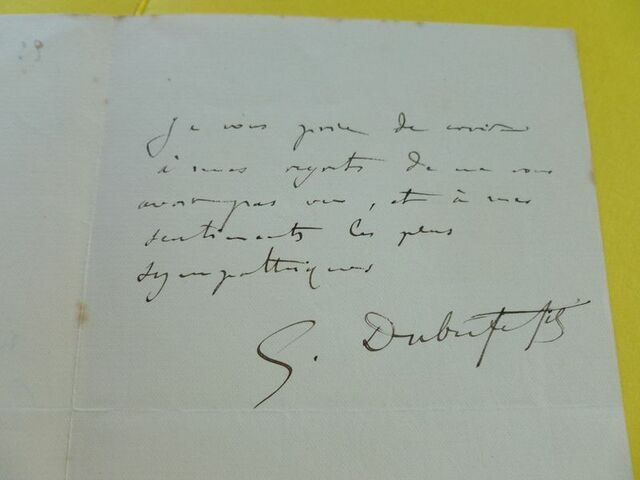 Je vous prie de croire
à mes regrets de ne vous
avoir pas vu, et à mes
sentiments les plus
sympathiques
G. Dubufe fils